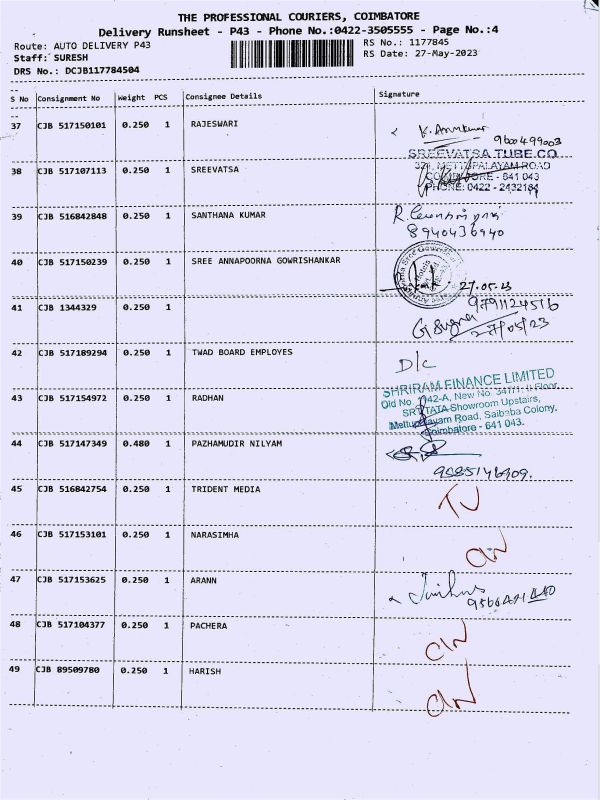 THE PROFESSIONAL COURIERS, COIMBATORE
Delivery Runsheet - P43 - Phone No.:0422-3505555 - Page No.:4
Route: AUTO DELIVERY P43
RS No.: 1177845
Staff: SURESH
RS Date: 27-May-2023
DRS No.: DCJB117784504
S No Consignment No Weight PCS Consignee Details Signature
37 CJB 517150101 0.250 1 RAJESWARI
9600499003
SREEVATSA TUBE CO
38 CJB 517107113 0.250 1 SREEVATSA
METTUPALAYAM ROAD
COIMBATORE - 641 043
PHONE: 0422 - 2432184
39 CJB 516842848 0.250 1 SANTHANA KUMAR
8940436940
40 CJB 517150239 0.250 1 SREE ANNAPOORNA GOWRISHANKAR
27.05.23
41 CJB 1344329 0.250 1
9791124516
27/05/23
42 CJB 517189294 0.250 1 TWAD BOARD EMPLOYES
D/c
SHRIRAM FINANCE LIMITED
43 CJB 517154972 0.250 1 RADHAN
Old No. 942-A, New No. 347/1, II Floor,
SRT TATA Showroom Upstairs,
Mettupalayam Road, Saibaba Colony,
Coimbatore - 641 043.
44 CJB 517147349 0.480 1 PAZHAMUDIR NILYAM
9585146909.
45 CJB 516842754 0.250 1 TRIDENT MEDIA
46 CJB 517153101 0.250 1 NARASIMHA
47 CJB 517153625 0.250 1 ARANN
48 CJB 517104377 0.250 1 PACHERA
49 CJB 89509780 0.250 1 HARISH